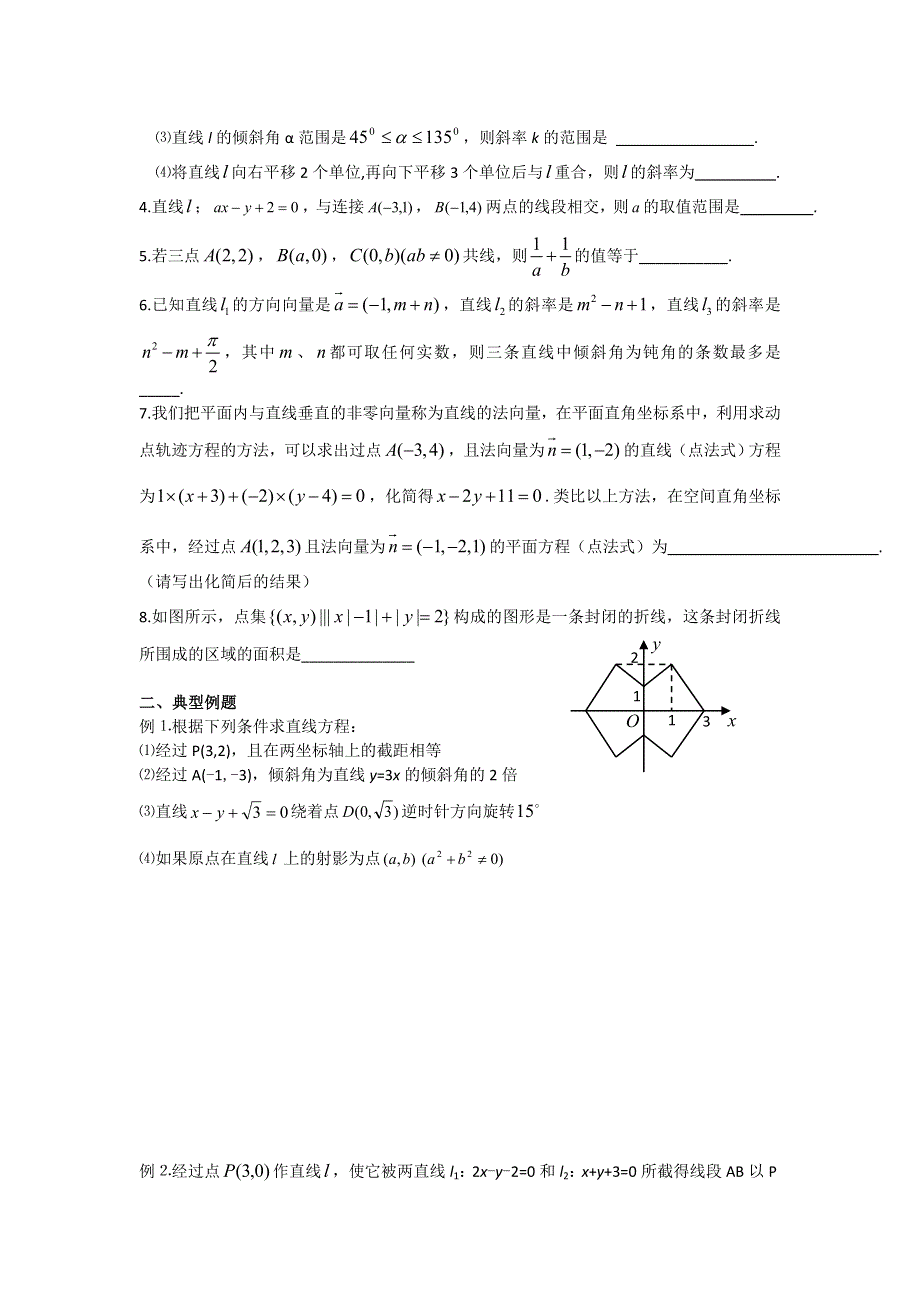 ⑶直线 l 的倾斜角 α 范围是 45⁰ ≤ α ≤ 135⁰，则斜率 k 的范围是 _________________.
⑷将直线 l 向右平移 2 个单位,再向下平移 3 个单位后与 l 重合，则 l 的斜率为__________.
4.直线 l； ax − y + 2 = 0，与连接 A(−3,1)， B(−1,4) 两点的线段相交，则 a 的取值范围是_________.
5.若三点 A(2,2)， B(a,0)， C(0,b)(ab ≠ 0) 共线，则 1/a + 1/b 的值等于___________.
6.已知直线 l₁ 的方向向量是 a⃗ = (−1, m + n)，直线 l₂ 的斜率是 m² − n + 1，直线 l₃ 的斜率是
n² − m + π/2，其中 m 、 n 都可取任何实数，则三条直线中倾斜角为钝角的条数最多是
_____.
7.我们把平面内与直线垂直的非零向量称为直线的法向量，在平面直角坐标系中，利用求动
点轨迹方程的方法，可以求出过点 A(−3,4)，且法向量为 n⃗ = (1,−2) 的直线（点法式）方程
为 1×(x + 3) + (−2)×(y − 4) = 0，化简得 x − 2y + 11 = 0. 类比以上方法，在空间直角坐标
系中，经过点 A(1,2,3) 且法向量为 n⃗ = (−1,−2,1) 的平面方程（点法式）为__________________________.
（请写出化简后的结果）
8.如图所示，点集 {(x, y)||| x | −1| + | y |= 2} 构成的图形是一条封闭的折线，这条封闭折线
所围成的区域的面积是______________
y
2
1
O
1
3
x
二、典型例题
例 1.根据下列条件求直线方程：
⑴经过 P(3,2)，且在两坐标轴上的截距相等
⑵经过 A(-1, -3)，倾斜角为直线 y=3x 的倾斜角的 2 倍
⑶直线 x − y + √3 = 0 绕着点 D(0, √3) 逆时针方向旋转 15°
⑷如果原点在直线 l 上的射影为点 (a,b) (a² + b² ≠ 0)
例 2.经过点 P(3,0) 作直线 l，使它被两直线 l₁：2x-y-2=0 和 l₂：x+y+3=0 所截得线段 AB 以 P